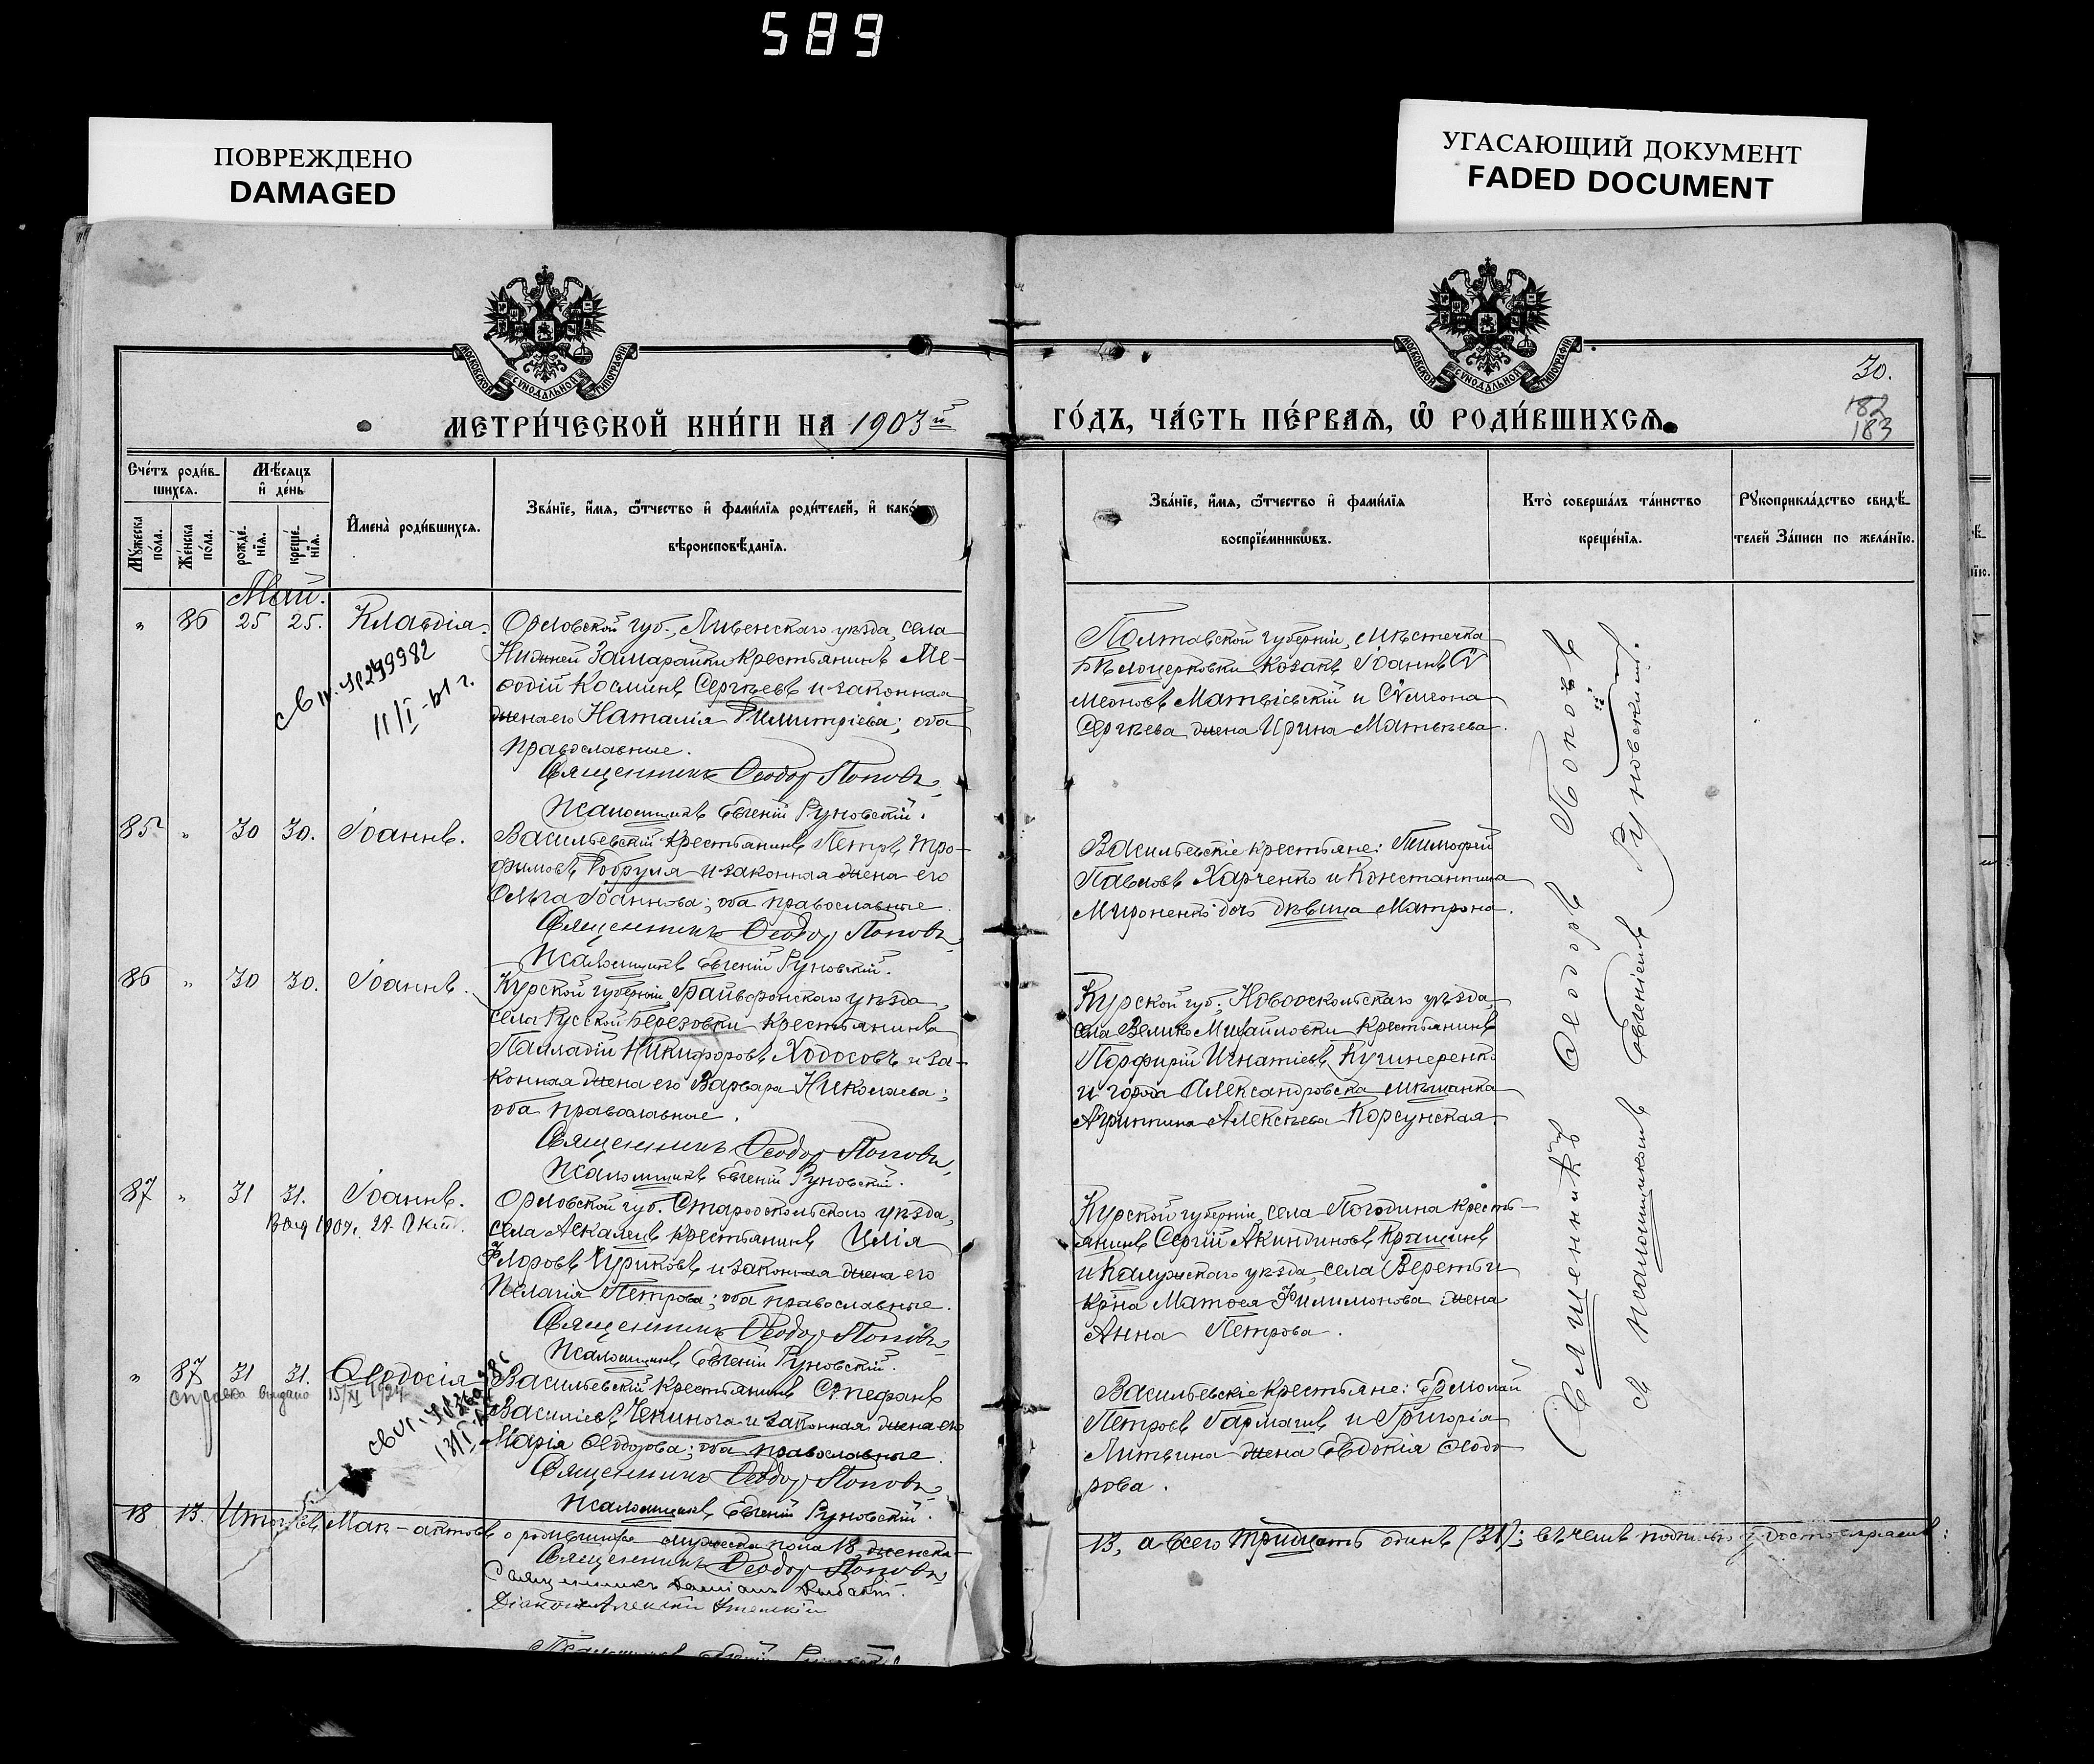 589
ПОВРЕЖДЕНО
DAMAGED
УГАСАЮЩИЙ ДОКУМЕНТ
FADED DOCUMENT
МОСКОВСКОЙ СѴНОДАЛЬНОЙ ТИПОГРАФІИ
МОСКОВСКОЙ СѴНОДАЛЬНОЙ ТИПОГРАФІИ
30.
182
183
МЕТРИ́ЧЕСКОЙ КНИ́ГИ НА 1903й
ГО́ДЪ, ЧА́СТЬ ПЕ́РВАѦ, Ѡ РОДИ́ВШИХСѦ.
Сче́тъ роди́в-
шихсѧ.
Мѣ́сѧцъ
и де́нь
Мꙋ́жеска
по́ла.
Же́нска
по́ла.
рожде́-
нїѧ.
креще́-
нїѧ.
Имена̀ роди́вшихсѧ.
Зва́нїе, и́мѧ, ѻ́тчество и фами́лїѧ роди́телей, и како́
вѣроисповѣ́данїѧ.
Зва́нїе, и́мѧ, ѻ́тчество и фами́лїѧ
воспрїе́мникѡвъ.
Кто̀ соверша́лъ та́инство
креще́нїѧ.
Рꙋкоприкла́дство свидѣ́-
телей За́писи по жела́нїю.
Май.
" 86 25 25. Клавдія.
Орловской губ., Ливенскаго уѣзда, села
Нижней Замарайки крестьянинъ Ме-
ѳодій Косминъ Сергѣевъ и законная
жена его Наталія Димитріева; оба
православные.
Священникъ Ѳеодор Поповъ
Псаломщикъ Евгеній Руновскій.
11/I-
Полтавской губерніи, мѣстечка
Бѣлоцерковки козакъ Іоаннъ Сѵ
меоновъ Матвіевскій и Сѵмеона
Сергѣева жена Ирина Матвѣева.
85. " 30 30. Іоаннъ.
Васильевскій крестьянинъ Петръ Тро-
фимовъ Кобруля и законная жена его
Ольга Іоаннова; оба православные.
Священникъ Ѳеодор Поповъ
Псаломщикъ Евгеній Руновскій.
Васильевскіе крестьяне: Тимофей
Павловъ Харченко и Константина
Мироненко дочь дѣвица Матрона.
86 " 30 30. Іоаннъ.
Курской губерніи, Грайворонскаго уѣзда,
села Русской Березовки крестьянинъ
Палладій Никифоровъ Ходосовъ и за-
конная жена его Варвара Николаева;
оба православные.
Священникъ Ѳеодор Поповъ
Псаломщикъ Евгеній Руновскій.
Курской губ., Новооскольскаго уѣзда,
села Велико Михайловки крестьянинъ
Порфирій Игнатіевъ Кушнеренко
и города Александровска мѣщанка
Агриппина Алексѣева Корсунская.
87 " 31 31. Іоаннъ.
1907г. 27. Окт.
Орловской губ. Старооскольскаго уѣзда,
села крестьянинъ Илія
Флоровъ Чуриковъ и законная жена его
Пелагія Петрова; оба православные.
Священникъ Ѳеодор Поповъ
Псаломщикъ Евгеній Руновскій.
Курской губерніи, села Погодина кресть-
янинъ Сергій Акиндиновъ Крашинъ
и Калужскаго уѣзда, села
кр'на Матѳея Филимонова жена
Анна Петрова.
" 87 31 31. Ѳеодосія
справка выдана 15/XI 1924
Васильевскій крестьянинъ Стефанъ
Василіевъ и законная жена его
Марія Ѳеодорова; оба православные.
Священникъ Ѳеодор Поповъ
Псаломщикъ Евгеній Руновскій.
Васильевскіе крестьяне: Ермолай
Петровъ Гармашъ и Григорія
Литвина жена Евдокія Ѳеодо-
рова.
Священникъ Ѳеодоръ Поповъ
съ псаломщикомъ Евгеніемъ Руновскимъ.
18 13. Итого въ Маѣ- актовъ о родившихся мужеска пола 18, женска-
13, а всего тридцать одинъ (31); въ чемъ подписью удостовѣряемъ:
Священникъ Ѳеодор Поповъ
Священникъ
Діаконъ Алексій
Псаломщикъ Евгеній Руновскій